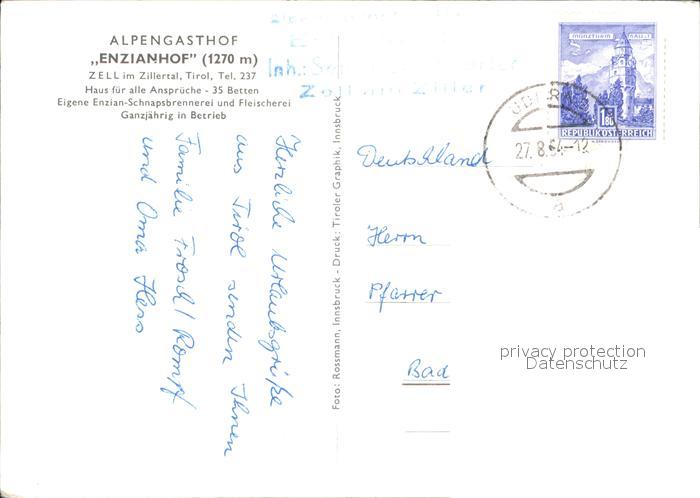 ALPENGASTHOF
„ENZIANHOF" (1270 m)
ZELL im Zillertal, Tirol, Tel. 237
Haus für alle Ansprüche - 35 Betten
Eigene Enzian-Schnapsbrennerei und Fleischerei
Ganzjährig in Betrieb
Inh.:
Zell am Ziller
MÜNZTURM HALL
1.80
REPUBLIK ÖSTERREICH
27. 8. 64-12
a
Herzliche Urlaubsgrüße
aus Tirol senden Ihnen
Familie Frosch / Rompf
und Oma Hess
Foto: Rossmann, Innsbruck - Druck: Tiroler Graphik, Innsbruck
Deutschland
Herrn
Pfarrer
Bad
privacy protection
Datenschutz